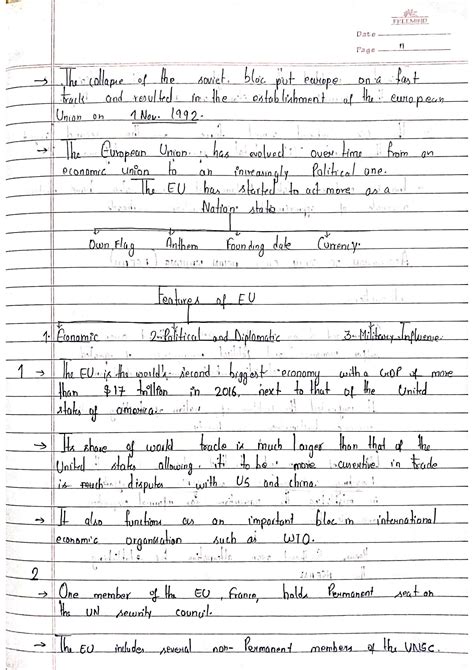 Date
Page 11
→ The collapse of the soviet bloc put europe on a fast
track and resulted in the establishment of the european
Union on 1 Nov. 1992.
→ The European Union has evolved over time from an
economic union to an increasingly Political one.
The EU has started to act more as a
Nation state
Own Flag Anthem Founding date Currency.
Features of EU
1. Economic 2- Political and Diplomatic 3- Military Influence
1 → The EU is the world's second biggest economy with a GDP of more
than $17 trillion in 2016, next to that of the United
states of america.
→ Its share of world trade is much larger than that of the
United states allowing it to be more in trade
is much disputes with US and china.
→ It also functions as an important bloc in international
economic organisation such as WTO.
2
→ One member of the EU, France, holds Permanent seat on
the UN security council.
→ The EU includes several non- Permanent members of the UNSC.